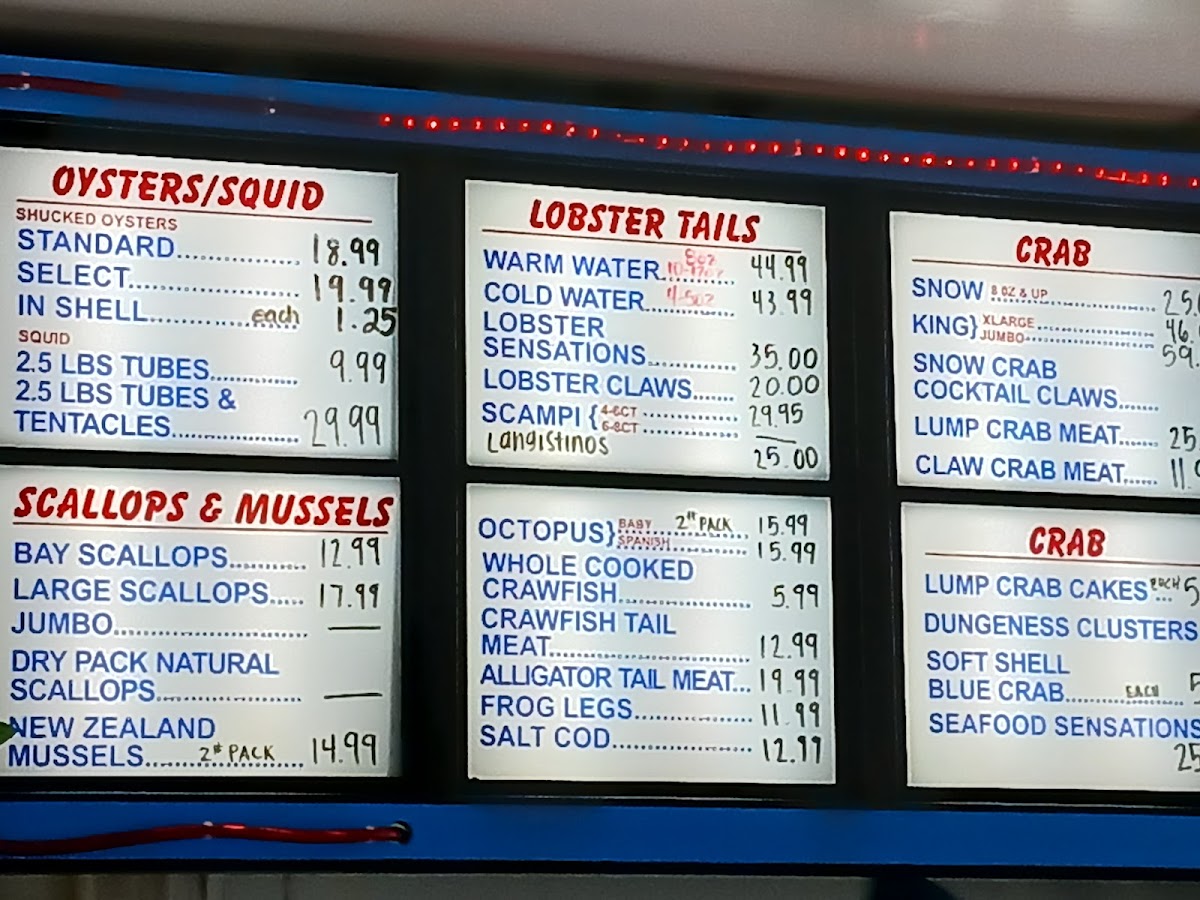 OYSTERS/SQUID
SHUCKED OYSTERS
STANDARD 18.99
SELECT 19.99
IN SHELL each 1.25
SQUID
2.5 LBS TUBES 9.99
2.5 LBS TUBES &
TENTACLES 29.99
SCALLOPS & MUSSELS
BAY SCALLOPS 12.99
LARGE SCALLOPS 17.99
JUMBO —
DRY PACK NATURAL
SCALLOPS —
NEW ZEALAND
MUSSELS 2# PACK 14.99
LOBSTER TAILS
8oz
WARM WATER 44.99
COLD WATER 4-5oz 43.99
LOBSTER
SENSATIONS 35.00
LOBSTER CLAWS 20.00
SCAMPI { 4-6CT 29.95
6-8CT —
Langistinos 25.00
OCTOPUS} BABY 2# PACK 15.99
SPANISH 15.99
WHOLE COOKED
CRAWFISH 5.99
CRAWFISH TAIL
MEAT 12.99
ALLIGATOR TAIL MEAT 19.99
FROG LEGS 11.99
SALT COD 12.99
CRAB
SNOW 8 OZ & UP 25.
KING} XLARGE 46.
JUMBO 59.
SNOW CRAB
COCKTAIL CLAWS
LUMP CRAB MEAT 25.
CLAW CRAB MEAT 11.
CRAB
LUMP CRAB CAKES each 5
DUNGENESS CLUSTERS
SOFT SHELL
BLUE CRAB EACH
SEAFOOD SENSATIONS
25